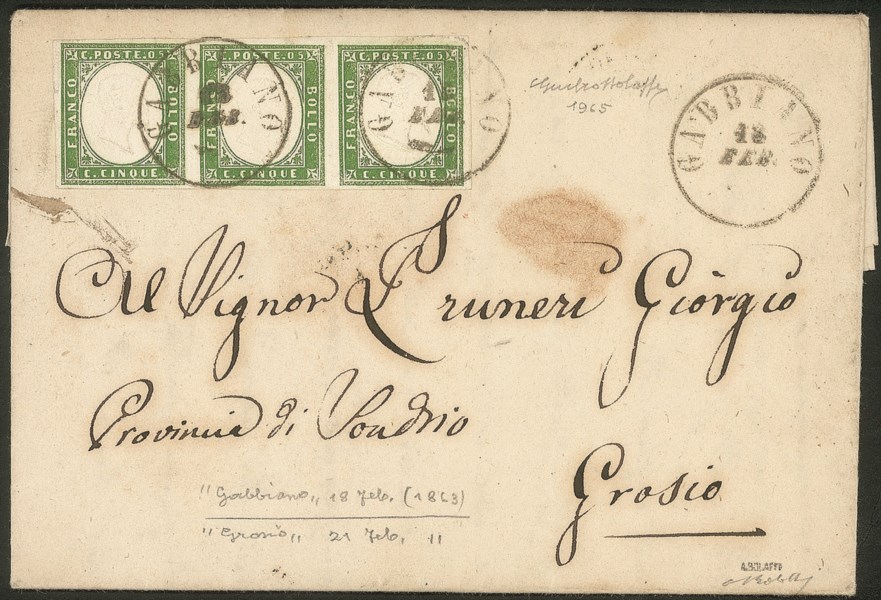 C. POSTE. 05 C. POSTE. 05 C. POSTE. 05
FRANCO BOLLO FRANCO BOLLO FRANCO BOLLO
C. CINQUE C. CINQUE C. CINQUE
GABBIANO
18
FEB.
GABBIANO
1
FEB.
GABBIANO
18
FEB.
1965
Al Signor Pruneri Giòrgio
Provincia di Sondrio
Grosio
"Gabbiano„ 18 Feb. (1863)
"Grosio„ 21 Feb. "
A.BOLAFFI